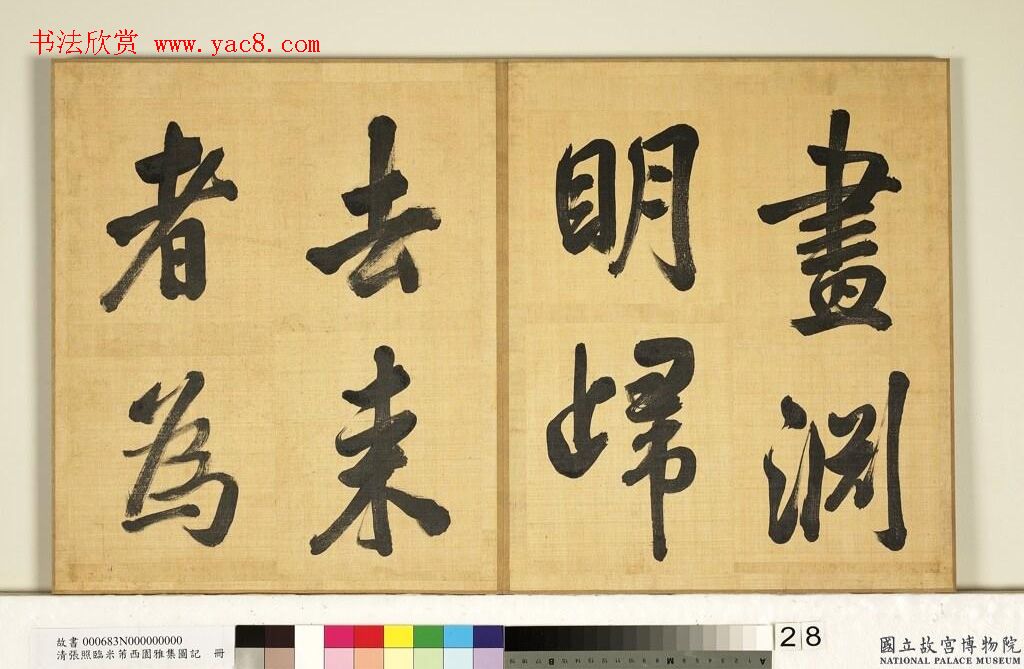 书法欣赏 www.yac8.com
畫淵
明歸
去来
者為
故書 000683N000000000
清張照臨米芾西園雅集圖記 冊
28
國立故宮博物院
NATIONAL PALACE MUSEUM